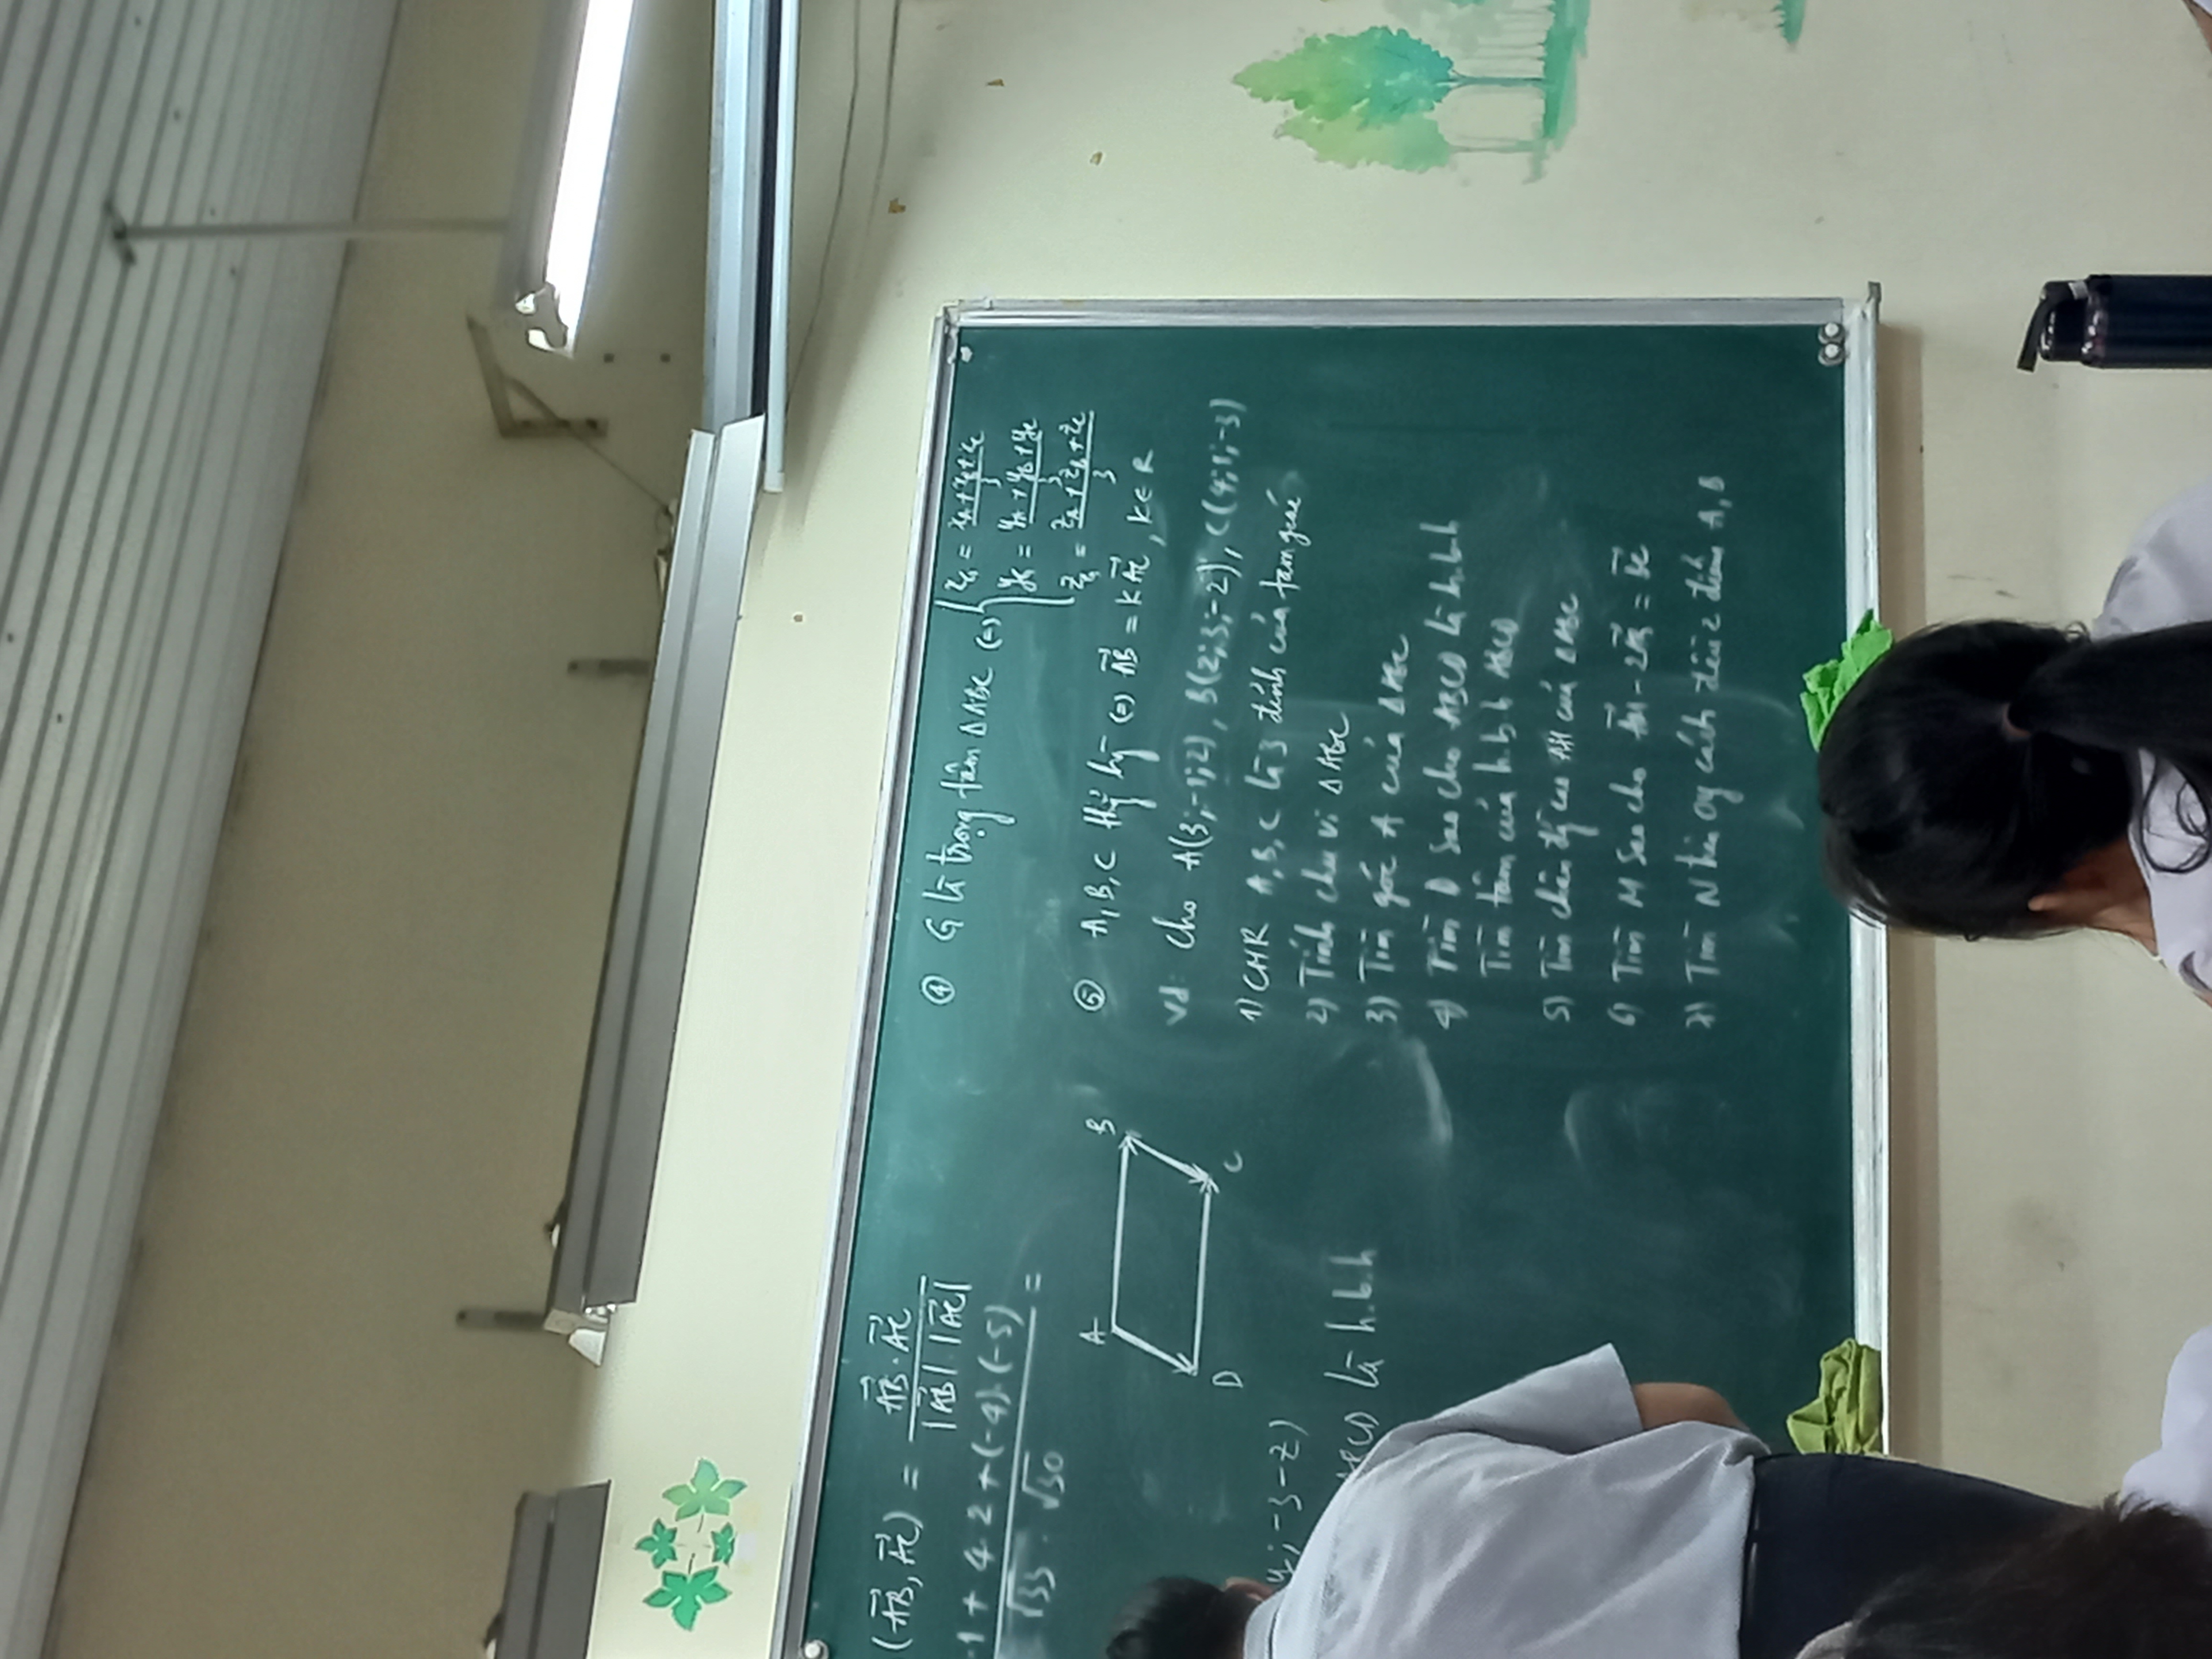 (AB, AC) = AB . AC / |AB| . |AC|
.1 + 4.2 + (-4).(-5) / √33 . √30 =
A B
D C
y; -3-z)
ABCD là h.b.h
④ G là trọng tâm ΔABC (=) { x_G = x_A + x_B + x_C / 3
y_G = y_A + y_B + y_C / 3
z_G = z_A + z_B + z_C / 3
⑤ A, B, C thg hg (=) AB = k AC, k ∈ R
vd: Cho A(3;-1;2), B(2;3;-2), C(4;1;-3)
1) CMR A, B, C là 3 đỉnh của tam giác
2) Tính chu vi ΔABC
3) Tìm góc A của ΔABC
4) Tìm D sao cho ABCD là h.b.h
Tìm tâm của h.b.h ABCD
5) Tìm chân đg cao AH của ΔABC
6) Tìm M sao cho AM - 2AB = BC
7) Tìm N trên Oy cách đều 2 điểm A, B